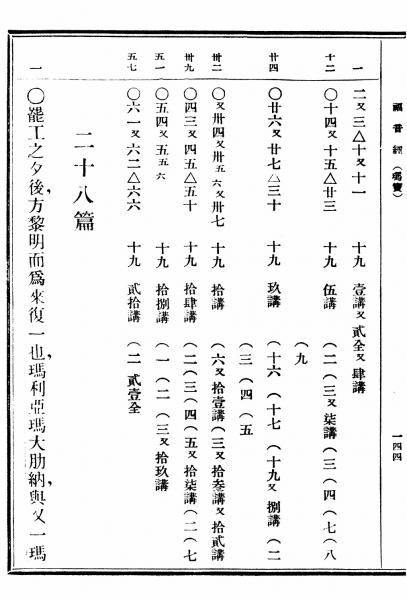 福音經（瑪竇）
一四四
一 二又三△十又十一 十九 壹講又貳全又肆講
十二 〇十四又十五△廿三 十九 伍講 （二（三又柒講（三（四（七（八
（九
廿四 〇廿六又廿七△三十 十九 玖講 （十六（十七（十九又捌講（二
（三（四（五
卅二 〇又卅四又卅五 六又卅七 十九 拾講 （六又拾壹講（三又拾叁講又拾貳講
卅九 〇四三又四五△五十 十九 拾肆講 （二（三（四（五又拾柒講（二（七
五一 〇五四又五五 六 十九 拾捌講 （一（二（三又拾玖講
五七 〇六一又六二△六六 十九 貳拾講 （二 貳壹全
二十八篇
一 〇罷工之夕後，方黎明而為來復一也，瑪利亞瑪大肋納，與又一瑪